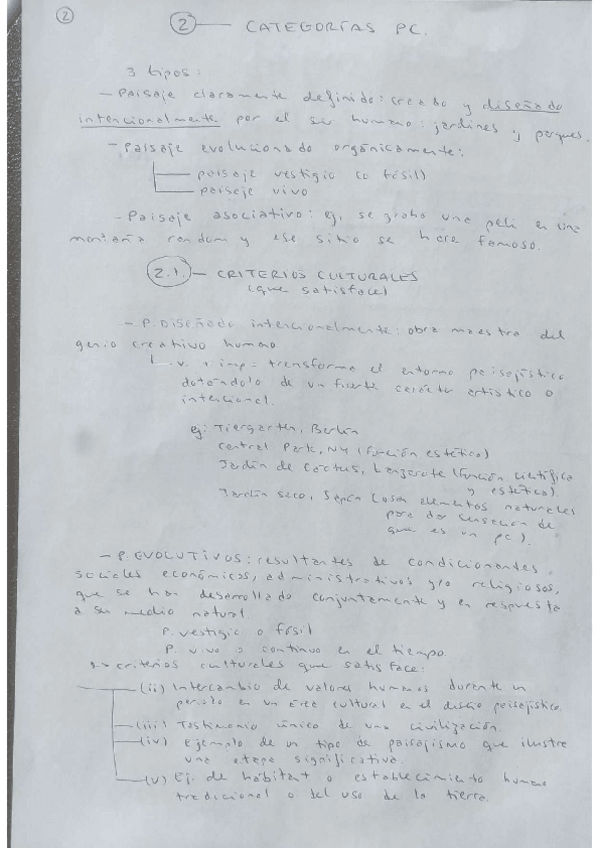 2
2 — CATEGORÍAS PC.
3 tipos:
- Paisaje claramente definido: creado y diseñado
intencionalmente por el ser humano: jardines y parques.
- Paisaje evolucionado orgánicamente:
paisaje vestigio (o fósil)
paisaje vivo
- Paisaje asociativo: ej, se graba una peli en una
montaña random y ese sitio se hace famoso.
2.1. — CRITERIOS CULTURALES
(que satisface)
- P. Diseñado intencionalmente: obra maestra del
genio creativo humano
v. + imp: transforma el entorno paisajístico
dotándolo de un fuerte carácter artístico o
intencional.
ej: Tiergarten, Berlín
Central Park, NY (función estética)
Jardín de Cactus, Lanzarote (función científica
y estética).
Jardín seco, Japón (usan elementos naturales
para dar sensación de
que es un pc).
- P. EVOLUTIVOS: resultantes de condicionantes
sociales económicos, administrativos y/o religiosos,
que se han desarrollado conjuntamente y en respuesta
a su medio natural.
P. vestigio o fósil
P. vivo o continuo en el tiempo.
criterios culturales que satisface:
(ii) Intercambio de valores humanos durante un
periodo en un área cultural en el diseño paisajístico.
(iii) Testimonio único de una civilización.
(iv) Ejemplo de un tipo de paisajismo que ilustre
una etapa significativa.
(v) Ej. de hábitat o establecimiento humano
tradicional o del uso de la tierra.